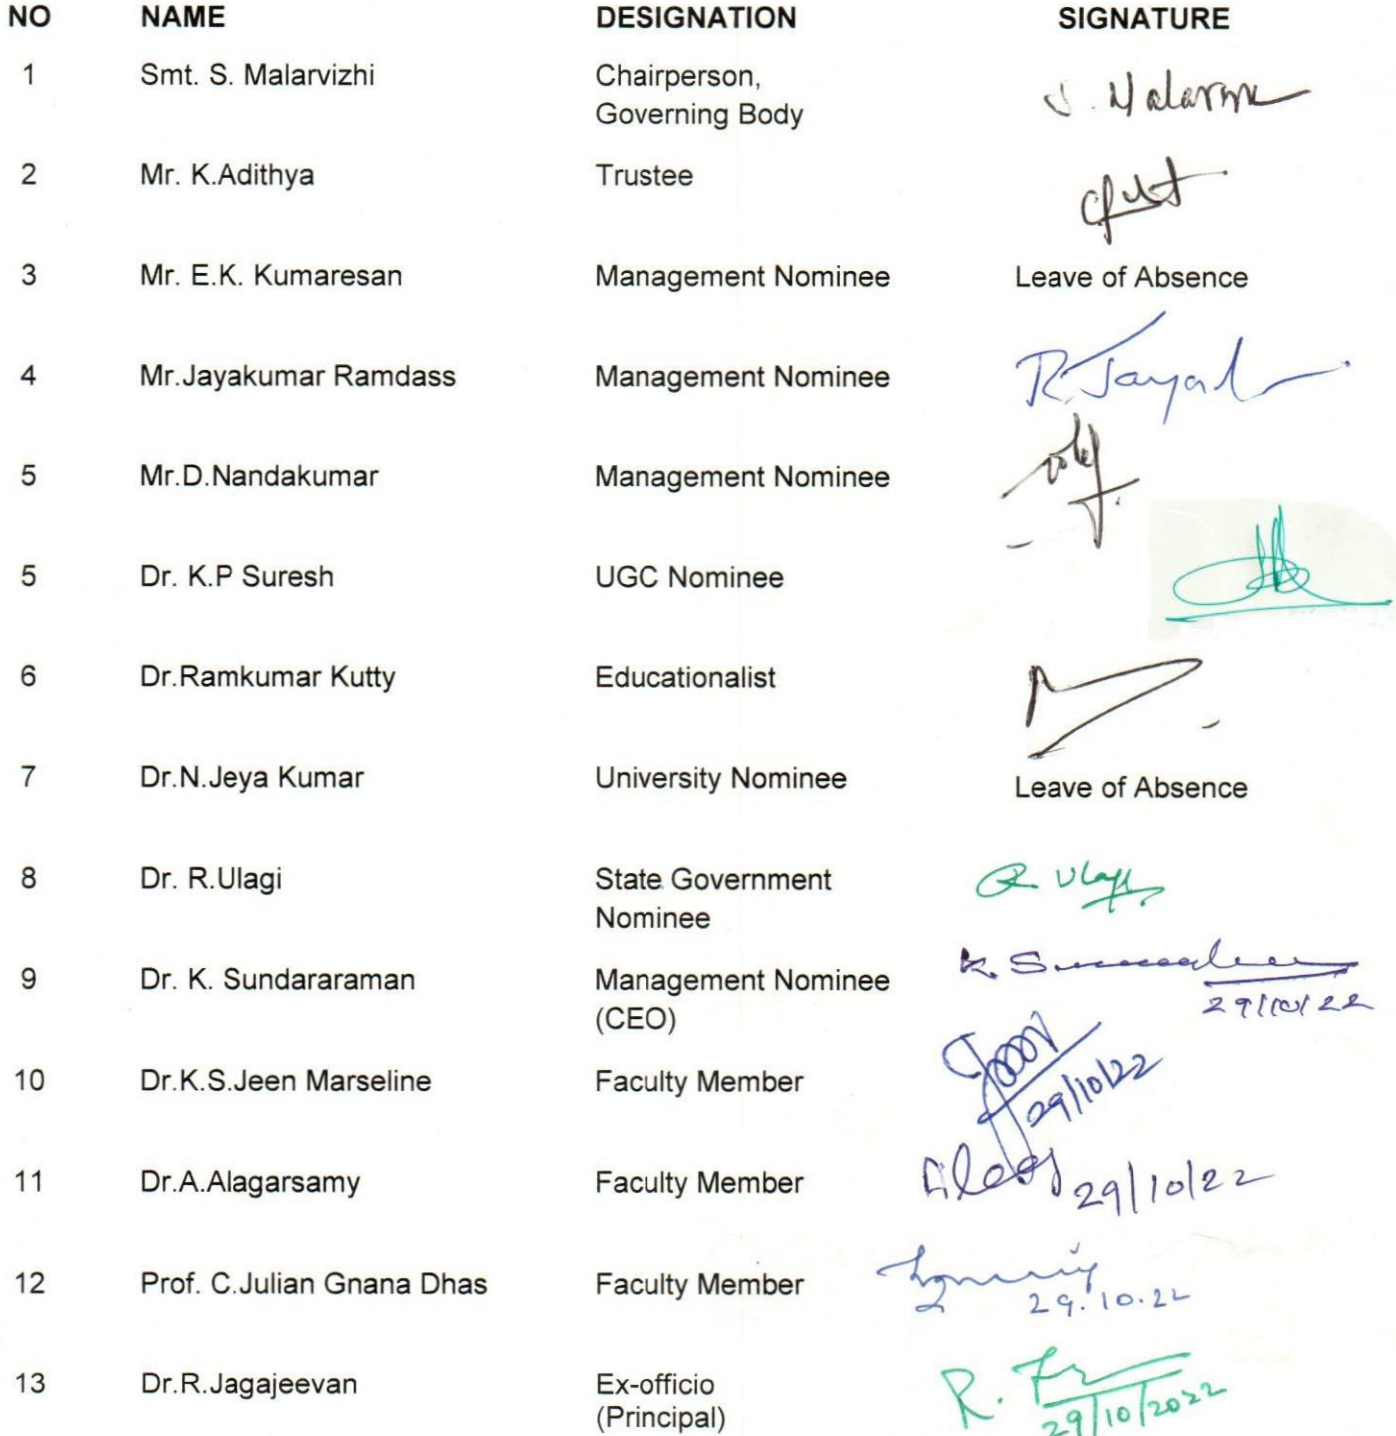 NO NAME DESIGNATION SIGNATURE
1 Smt. S. Malarvizhi Chairperson,
Governing Body
2 Mr. K.Adithya Trustee
3 Mr. E.K. Kumaresan Management Nominee Leave of Absence
4 Mr.Jayakumar Ramdass Management Nominee
5 Mr.D.Nandakumar Management Nominee
5 Dr. K.P Suresh UGC Nominee
6 Dr.Ramkumar Kutty Educationalist
7 Dr.N.Jeya Kumar University Nominee Leave of Absence
8 Dr. R.Ulagi State Government
Nominee
9 Dr. K. Sundararaman Management Nominee
(CEO) 29/10/22
10 Dr.K.S.Jeen Marseline Faculty Member 29/10/22
11 Dr.A.Alagarsamy Faculty Member 29/10/22
12 Prof. C.Julian Gnana Dhas Faculty Member 29.10.22
13 Dr.R.Jagajeevan Ex-officio
(Principal) 29/10/2022